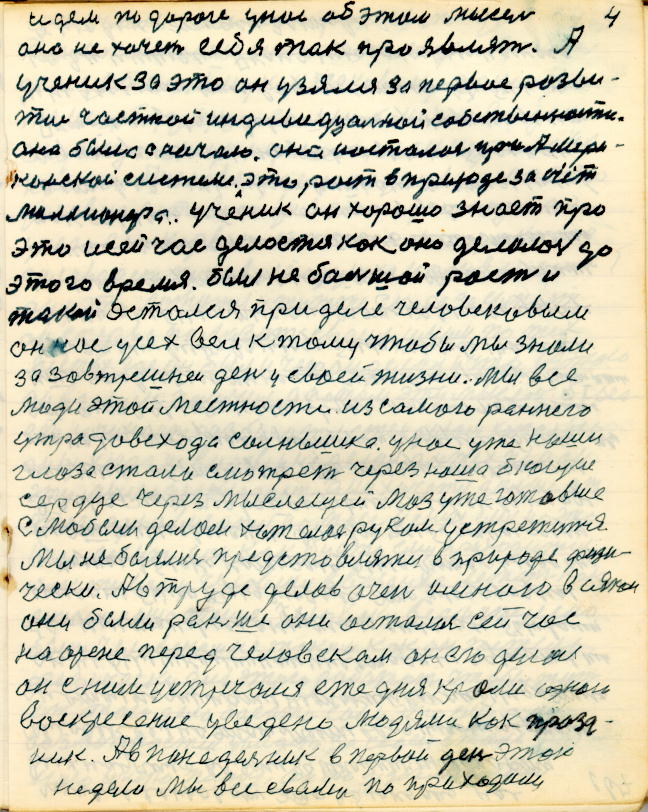 4
идем по дороге унас об этом мысел
она не хочет себя так проявлят. А
ученик за это он узялся за первое разви-
тие частной индивидуалной собственности.
она была сначало. она осталас при Амери-
конской системе, это рост в природе за счёт
миллионера. ученик он хорошо знает про
это и сейчас делается как оно делалос до
этого время. был не большой рост и
такой остался при деле человековым
он нас усех вел к тому чтобы мы знали
за завтрешней ден у своей жизни. Мы все
люди этой местности из самого раннего
утра довсхода солнышка. унас уже наши
глоза стали смотрет через наша бющие
сердце через мыслящей моз уже готовые
с любым делом хоталос руком устретится
Мы не боялис предстовлятся в природе физи-
чески. А в труде делов очен много всяких
они были раньше они остался сейчас
на арене перед человеком он его делал
он с ним устречался еже дня кроме одного
воскресение уведено людями как празд-
ник. А в понеделник в первой ден этой
недели мы все свами по приходом